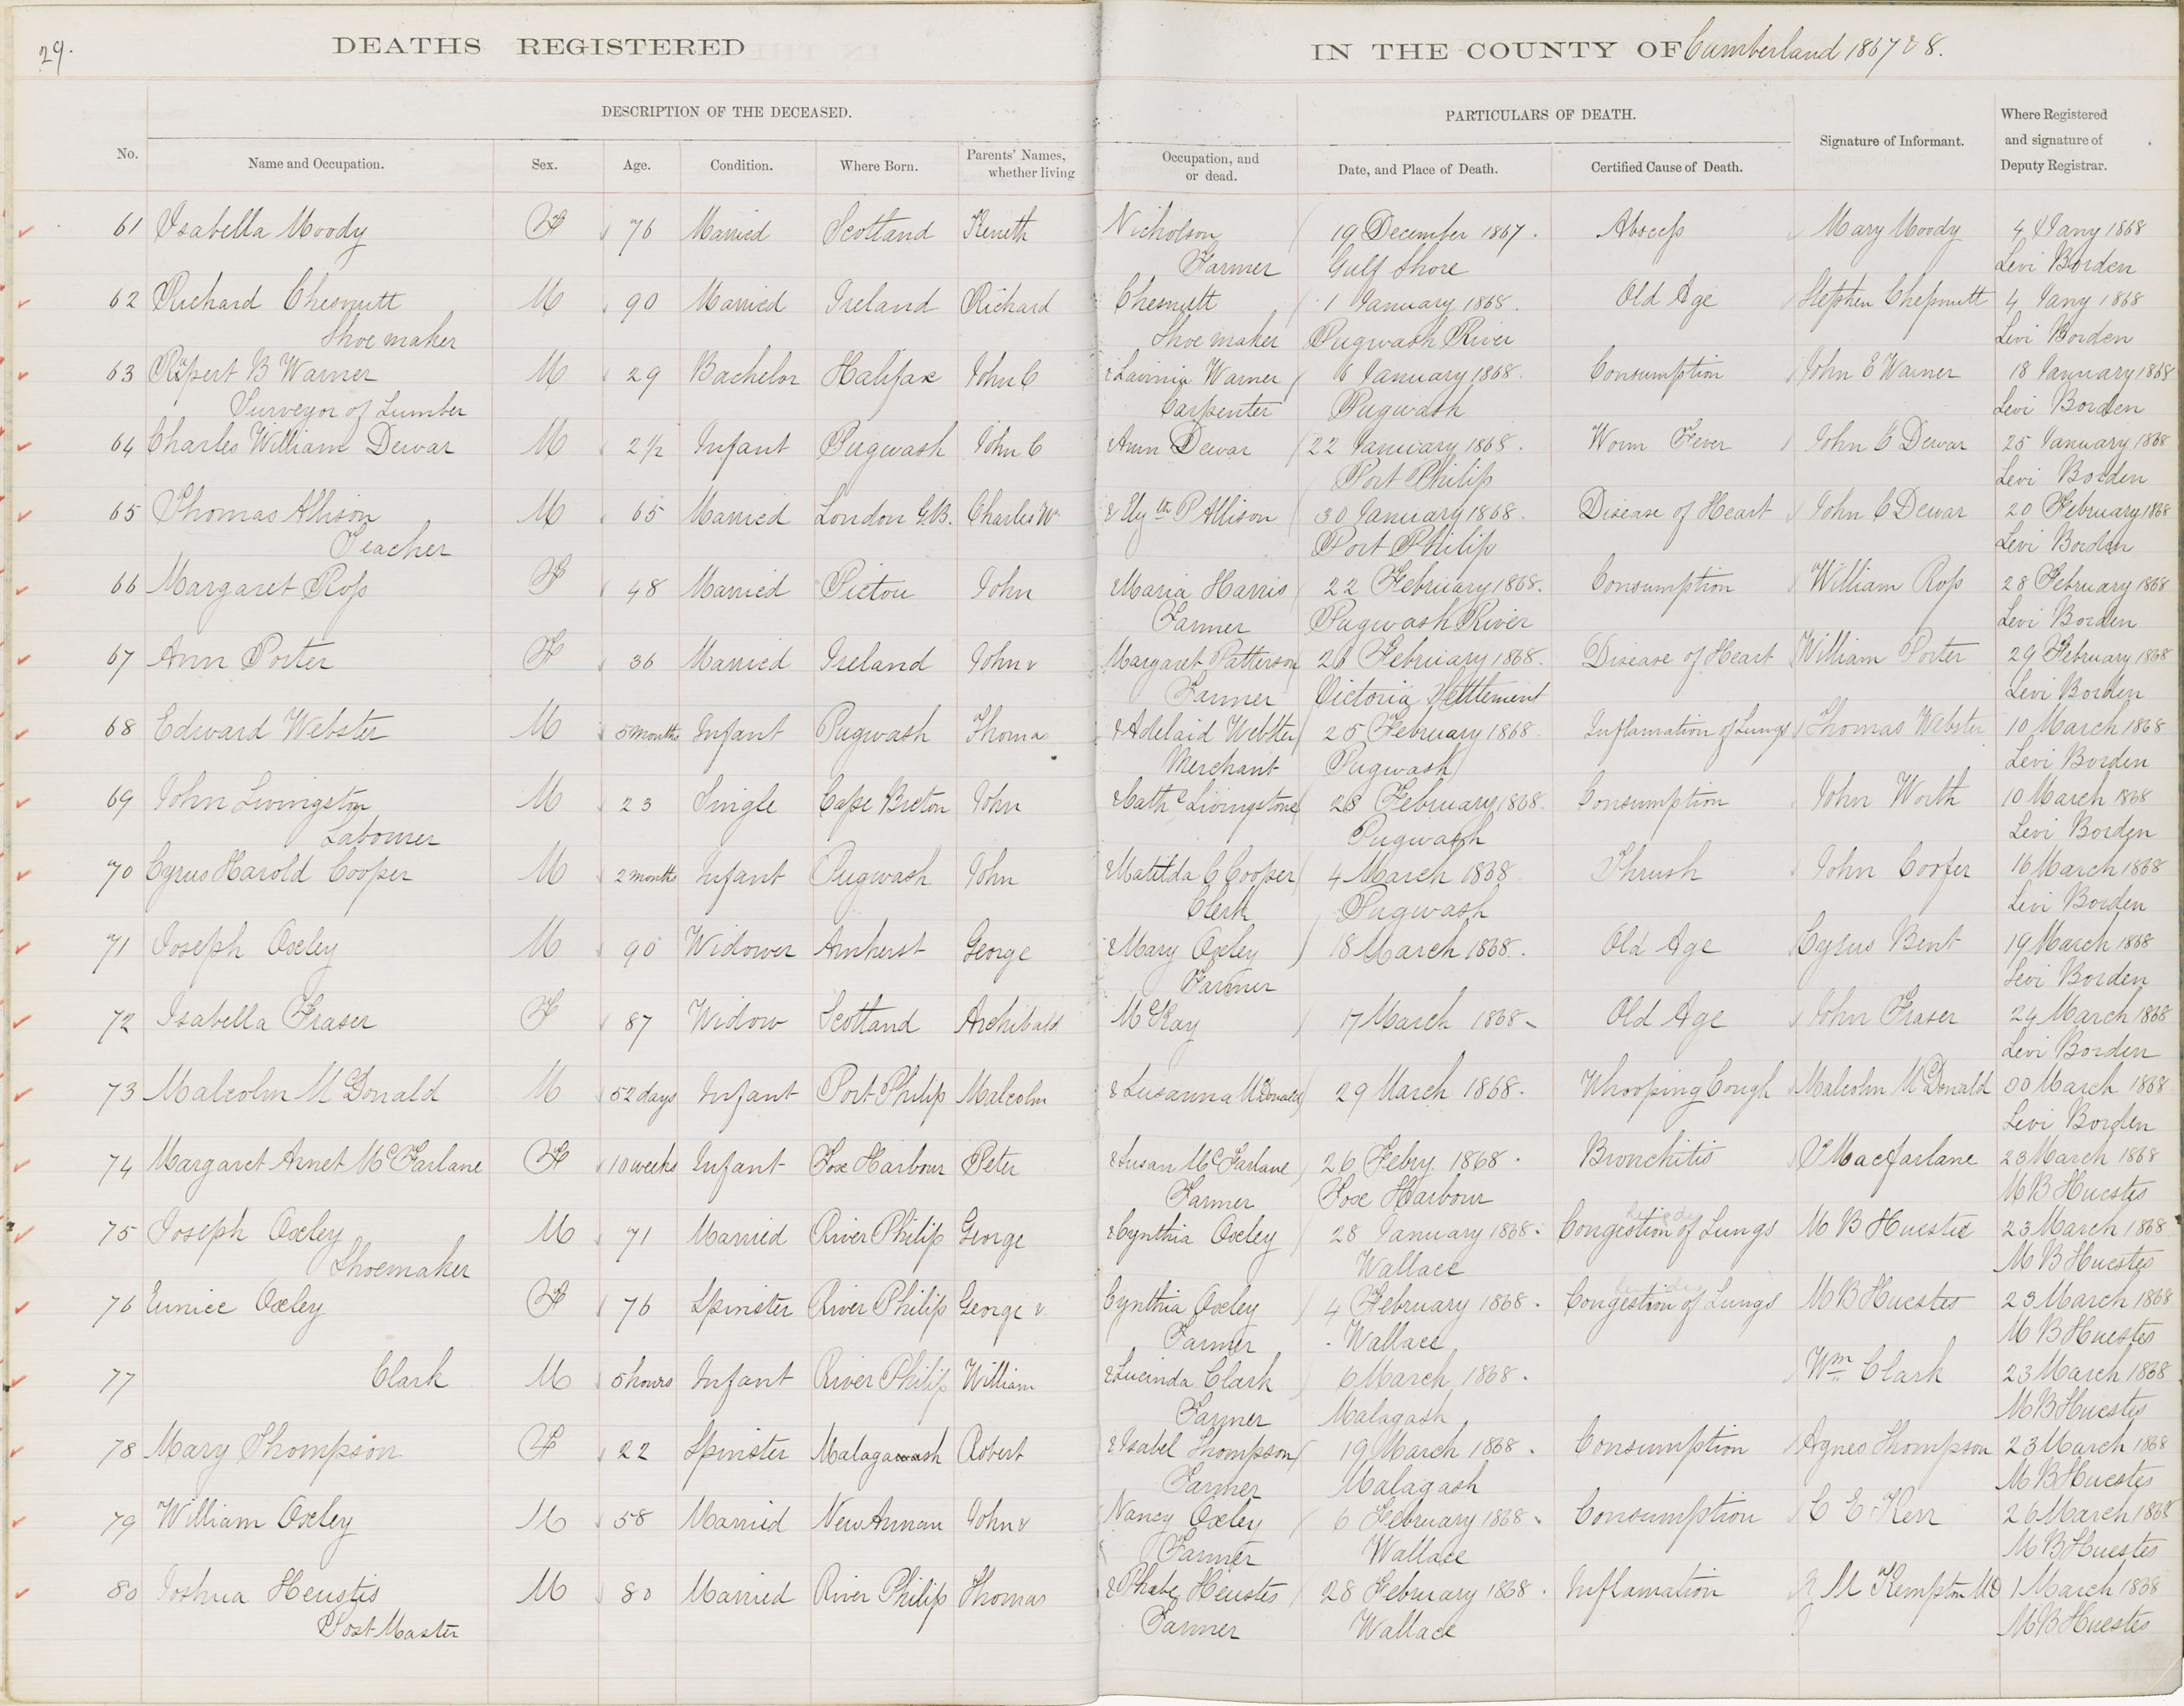 29.
DEATHS REGISTERED IN THE COUNTY OF Cumberland 1867 & 8.
DESCRIPTION OF THE DECEASED. PARTICULARS OF DEATH.
No. Name and Occupation. Sex. Age. Condition. Where Born. Parents' Names, whether living Occupation, and or dead. Date, and Place of Death. Certified Cause of Death. Signature of Informant. Where Registered and signature of Deputy Registrar.
61 Isabella Moody F 76 Married Scotland Keneth Nicholson 19 December 1867. Abscess Mary Moody 4 Jany 1868
Farmer Gulf Shore Levi Borden
62 Richard Chesnutt M 90 Married Ireland Richard Chesnutt 1 January 1868. Old Age Stephen Chesnutt 4 Jany 1868
Shoe maker Shoe maker Pugwash River Levi Borden
63 Rupert B Warner M 29 Bachelor Halifax John C & Lavinia Warner 6 January 1868. Consumption John E Warner 18 January 1868
Surveyor of Lumber Carpenter Pugwash Levi Borden
64 Charles William Dewar M 2½ Infant Pugwash John C & Ann Dewar 22 January 1868. Worm Fever John C Dewar 25 January 1868
Port Philip Levi Borden
65 Thomas Allison M 65 Married London G.B. Charles W & Elyth P Allison 30 January 1868. Disease of Heart John C Dewar 20 February 1868
Teacher Port Philip Levi Borden
66 Margaret Ross F 48 Married Pictou John & Maria Harris 22 February 1868. Consumption William Ross 28 February 1868
Farmer Pugwash River Levi Borden
67 Ann Porter F 36 Married Ireland John & Margaret Patterson 26 February 1868. Disease of Heart William Porter 29 February 1868
Farmer Victoria Settlement Levi Borden
68 Edward Webster M 5 months Infant Pugwash Thoma & Adelaid Webster 25 February 1868 Inflamation of Lungs Thomas Webster 10 March 1868
Merchant Pugwash Levi Borden
69 John Livingston M 23 Single Cape Breton John & Cathe Livingstone 28 February 1868. Consumption John Worth 10 March 1868
Labourer Pugwash Levi Borden
70 Cyrus Harold Cooper M 2 months Infant Pugwash John & Matilda C Cooper 4 March 1868 Thrush John Cooper 16 March 1868
Clerk Pugwash Levi Borden
71 Joseph Oxley M 90 Widower Amherst George & Mary Oxley 18 March 1868. Old Age Cyrus Bent 19 March 1868
Farmer Levi Borden
72 Isabella Fraser F 87 Widow Scotland Archibald McKay 17 March 1868 Old Age John Fraser 24 March 1868
Levi Borden
73 Malcolm McDonald M 52 days Infant Port Philip Malcolm & Susanna McDonald 29 March 1868. Whooping Cough Malcolm McDonald 30 March 1868
Levi Borden
74 Margaret Arnet McFarlane F 10 weeks Infant Fox Harbour Peter & Susan McFarlane 26 Febry 1868. Bronchitis P Macfarlane 23 March 1868
Farmer Fox Harbour M B Huestis
75 Joseph Oxley M 71 Married River Philip George & Cynthia Oxley 28 January 1868. Congestion of Lungs M B Huestis 23 March 1868
Shoemaker Wallace M B Huestis
76 Eunice Oxley F 76 Spinster River Philip George & Cynthia Oxley 4 February 1868. Congestion of Lungs M B Huestis 23 March 1868
Farmer Wallace M B Huestis
77 Clark M 5 hours Infant River Philip William & Lucinda Clark 6 March 1868. Wm Clark 23 March 1868
Farmer Malagash M B Huestis
78 Mary Thompson F 22 Spinster Malagash Robert & Isabel Thompson 19 March 1868. Consumption Agnes Thompson 23 March 1868
Farmer Malagash M B Huestis
79 William Oxley M 58 Married New Annan John & Nancy Oxley 6 February 1868 Consumption C E Kerr 26 March 1868
Farmer Wallace M B Huestis
80 Joshua Heustis M 80 Married River Philip Thomas & Phabe Heustes 28 February 1868. Inflamation M Kempton MD 1 March 1868
Post Master Farmer Wallace M B Huestis